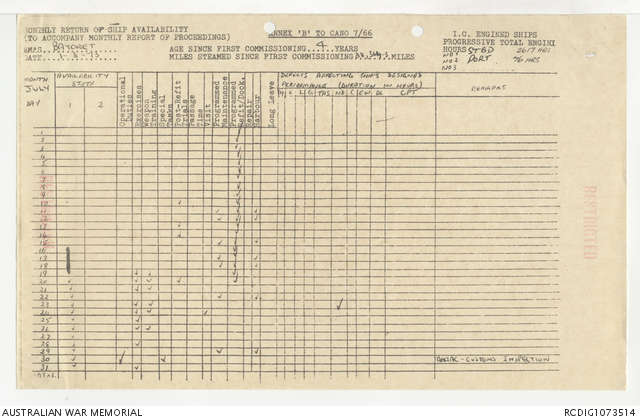 MONTHLY RETURN OF SHIP AVAILABILITY
(TO ACCOMPANY MONTHLY REPORT OF PROCEEDINGS)
ANNEX 'B' TO CANO 7/66
I.C. ENGINED SHIPS
PROGRESSIVE TOTAL ENGINE
HMAS BAYONET
AGE SINCE FIRST COMMISSIONING...4...YEARS
HOURS STBD 2617 HRS
DATE
MILES STEAMED SINCE FIRST COMMISSIONING MILES
NO 2 PORT HRS
NO 3
MONTH
JULY
DAY
AVAILABILITY
STATE
1 2
Operational Duties
Exercises
Weapon Training
Special Tasks
Post-Refit Trials
Passage Time
Visit
Programmed Maintenance
Programmed Refit/Dock.
Repair
Harbour
Long Leave
DEFECTS AFFECTING SHIPS DESIGNED
PERFORMANCE (DURATION IN HOURS)
REMARKS
1
2
3
4
5
6
7
8
9
10
11
12
13
14
15
16
17
18
19
20
21
22
23
24
25
26
27
28
29
30 CUSTOMS INSPECTION
31
RESTRICTED
AUSTRALIAN WAR MEMORIAL
RCDIG1073514